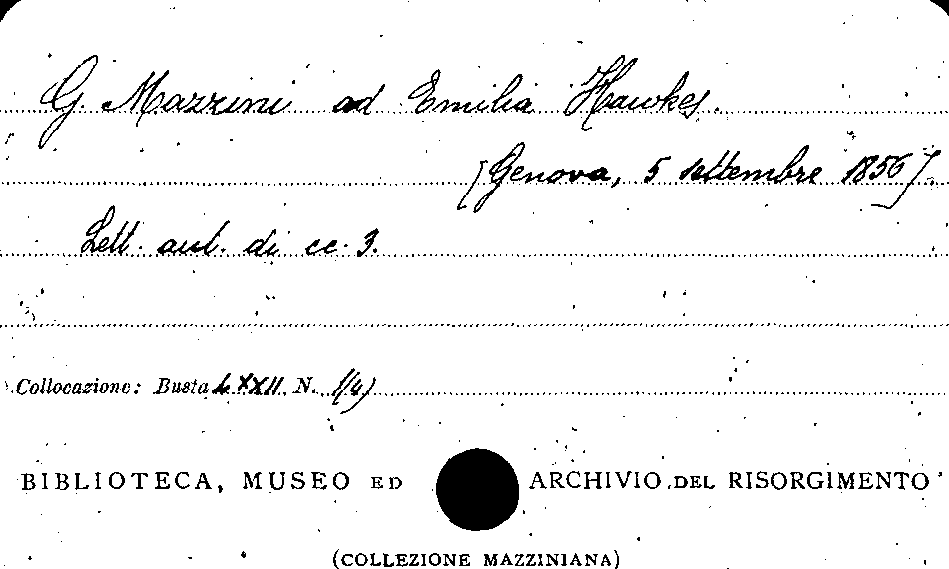 G. Mazzini ad Emilia Hawkes.
[Genova, 5 settembre 1856].
Lett. aut. di cc. 3.
Collocazione: Busta LXXII N. 1(4)
BIBLIOTECA, MUSEO ED ARCHIVIO DEL RISORGIMENTO
(COLLEZIONE MAZZINIANA)